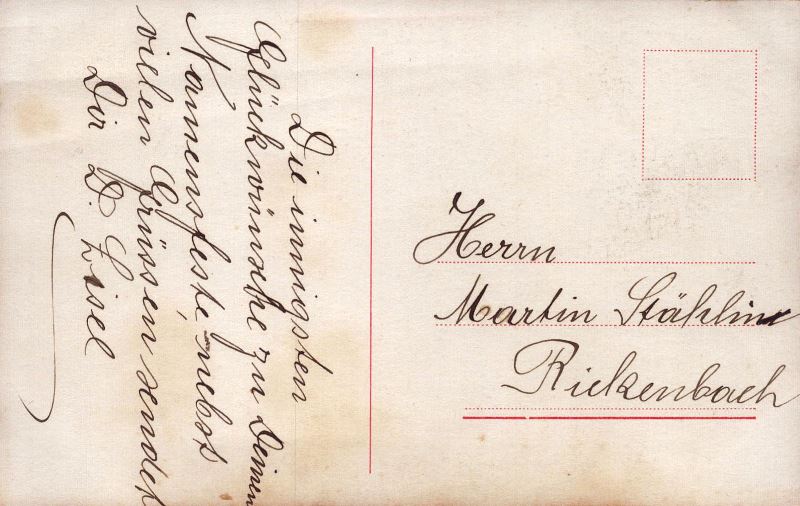 Die innigsten
Glückwünsche zu Deinem
Namensfeste, nebst
vielen Grüssen sendet
Dir D. Lisel
Herrn
Martin Stählin
Rickenbach